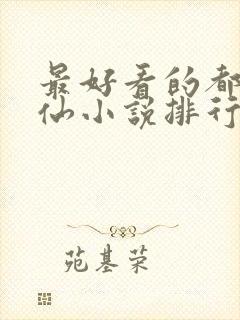 最好看的都
仙小说排行
苑基荣